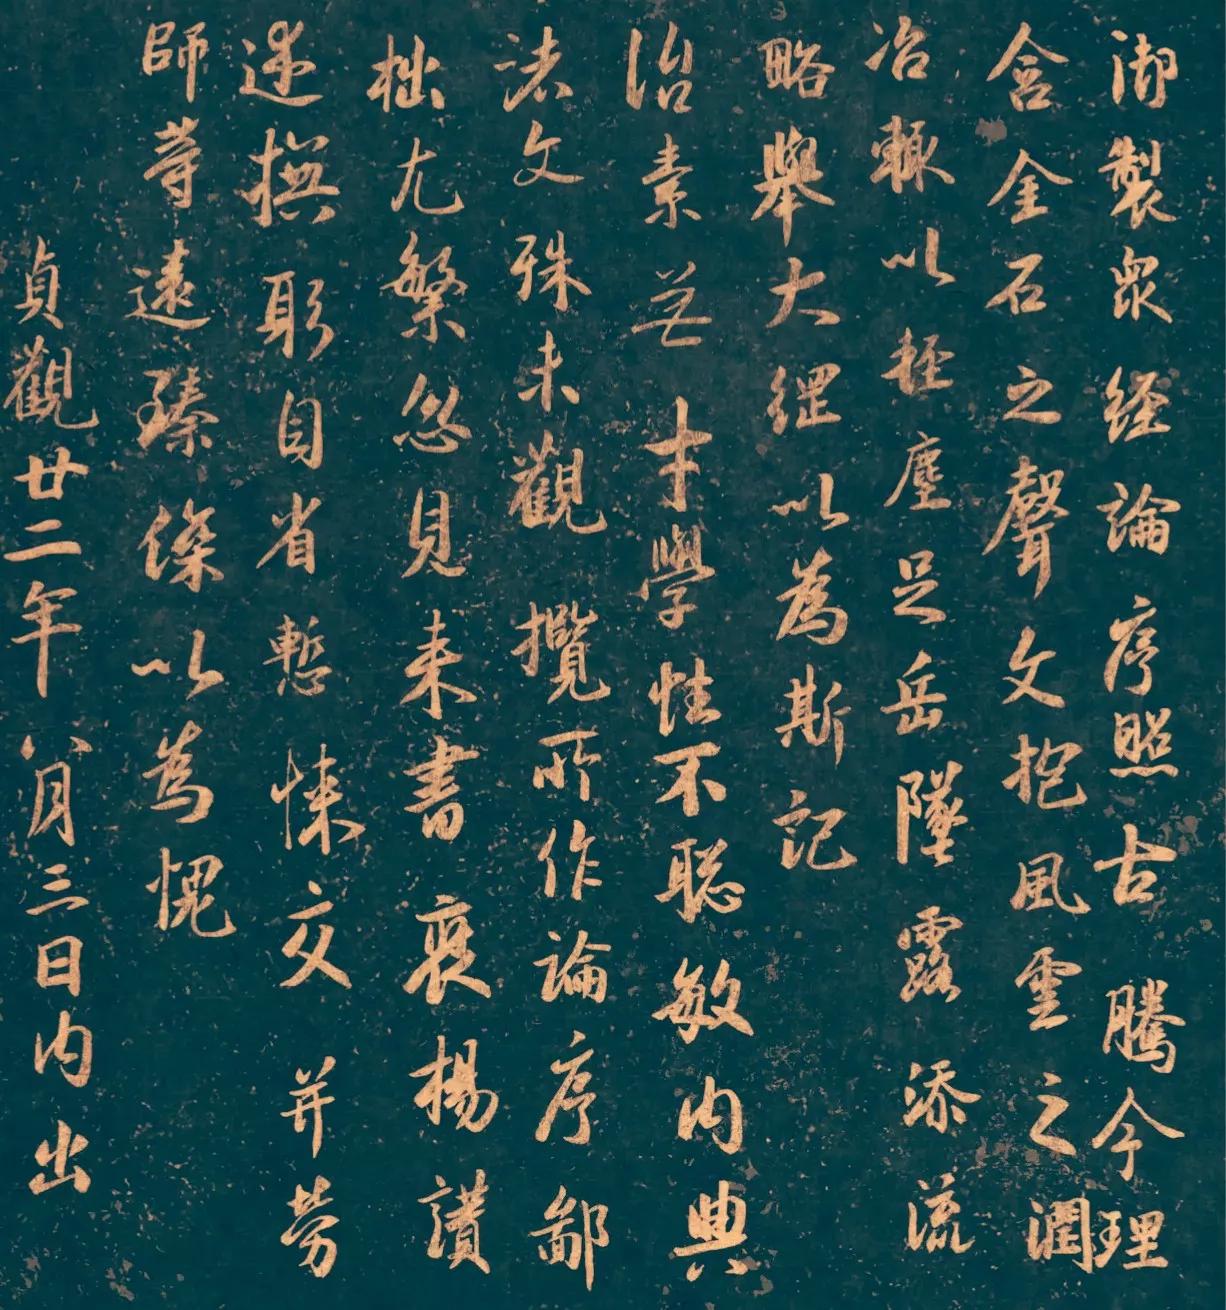 御製衆经論序照古騰今理
含金石之聲文抱風雲之潤
治輙以軽塵足岳墜露添流
略舉大綱以為斯記
治素无才學性不聪敏内典
諸文殊未觀攬所作論序鄙
拙尤繁忽見来書褒揚讃
述撫躬自省慙悚交并勞
師等遠臻深以為愧
貞觀廿二年八月三日内出